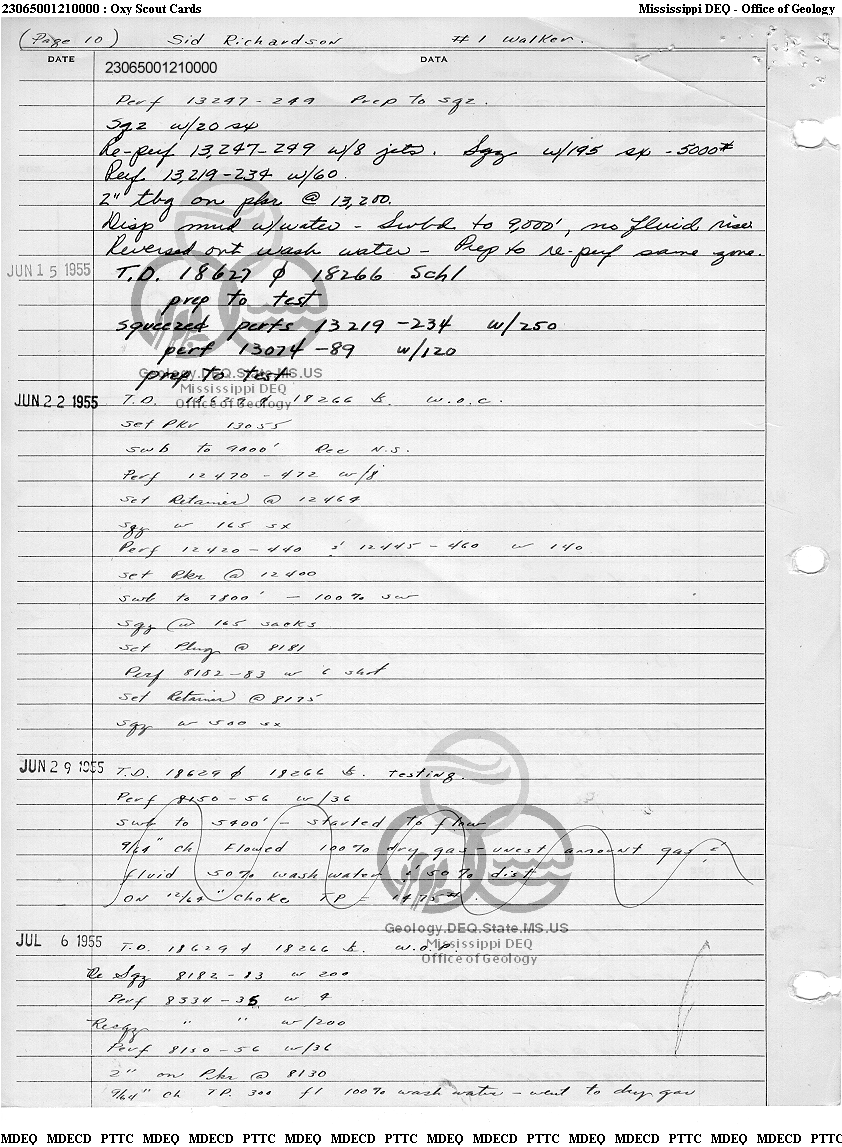 23065001210000 : Oxy Scout Cards Mississippi DEQ - Office of Geology
(Page 10) Sid Richardson #1 Walker.
DATE DATA
23065001210000
Perf 13247-249 Prep to sqz.
Sqz w/20 sx
Re-perf 13,247-249 w/8 jets. Sqz w/195 sx - 5000#
Perf 13,219-234 w/60.
2" tbg on pkr @ 13,200.
Disp mud w/water - Swbd to 9,000', no fluid rise
Reversed out wash water - Prep to re-perf same zone.
JUN 15 1955 T.D. 18627 φ 18266 Schl
prep to test
squeezed perfs 13219-234 w/250
perf 13074-89 w/120
prep to test
Geology.DEQ.State.MS.US
Mississippi DEQ
Office of Geology
JUN 22 1955 T.D. 18629 φ 18266 W.O.C.
set Pkr 13055
swb to 9000' Rec N.S.
Perf 12470-472 w/8
set Retainer @ 12464
sqz w 165 sx
Perf 12420-440 & 12445-460 w 140
set Pkr @ 12400
swb to 7800' - 100% sw
sqz @ 165 sacks
set Plug @ 8181
Perf 8182-83 w 6 shot
set Retainer @ 8175
sqz w 500 sx
JUN 29 1955 T.D. 18629 φ 18266 testing.
Perf 8150-56 w/36
swb to 5400' - started to flow
9/64" ch Flowed 100% dry gas - unest amount gas &
fluid 50% wash water & 50% dist
ON 12/64" choke TP = 1475#.
Geology.DEQ.State.MS.US
Mississippi DEQ
Office of Geology
JUL 6 1955 T.D. 18629 φ 18266 W.O.P.
Re Sqz 8182-83 w 200
Perf 8334-36 w 4
Resqz " " w/200
Perf 8150-56 w/36
2" on Pkr @ 8130
9/64" ch TP. 300 fl 100% wash water - went to dry gas
MDEQ MDECD PTTC MDEQ MDECD PTTC MDEQ MDECD PTTC MDEQ MDECD PTTC MDEQ MDECD PTTC MDEQ MDECD PTTC MDEQ MDECD PTTC